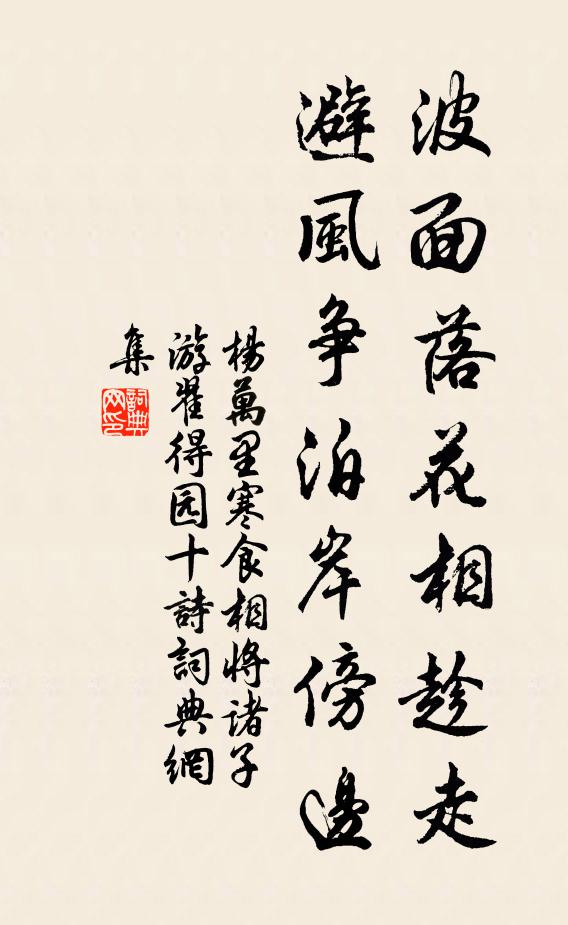 波面落花相趁走
避風争泊岸傍邊
楊萬里寒食相將諸子
游翟得园十詩詞典網
集
詞典
网印